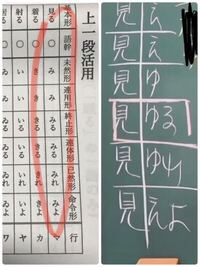 上一段活用
本形 語幹 未然形 連用形 終止形 連体形 已然形 命令形 行
見る ○ み み みる みる みれ みよ マ
着る ○ き き きる きる きれ きよ カ
射る ○ い い いる いる いれ いよ ヤ
居る ○ ゐ ゐ ゐる ゐる ゐれ ゐよ ワ
見 え
見 え
見 ゆ
見 ゆる
見 ゆれ
見 えよ